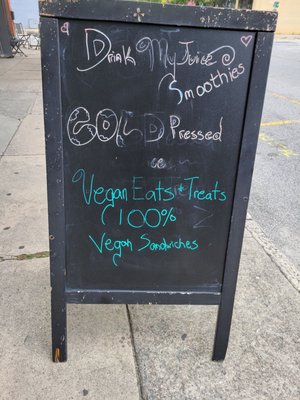 Drink My Juice
Smoothies
COLD Pressed
Vegan Eats & Treats
(100%
Vegan Sandwiches